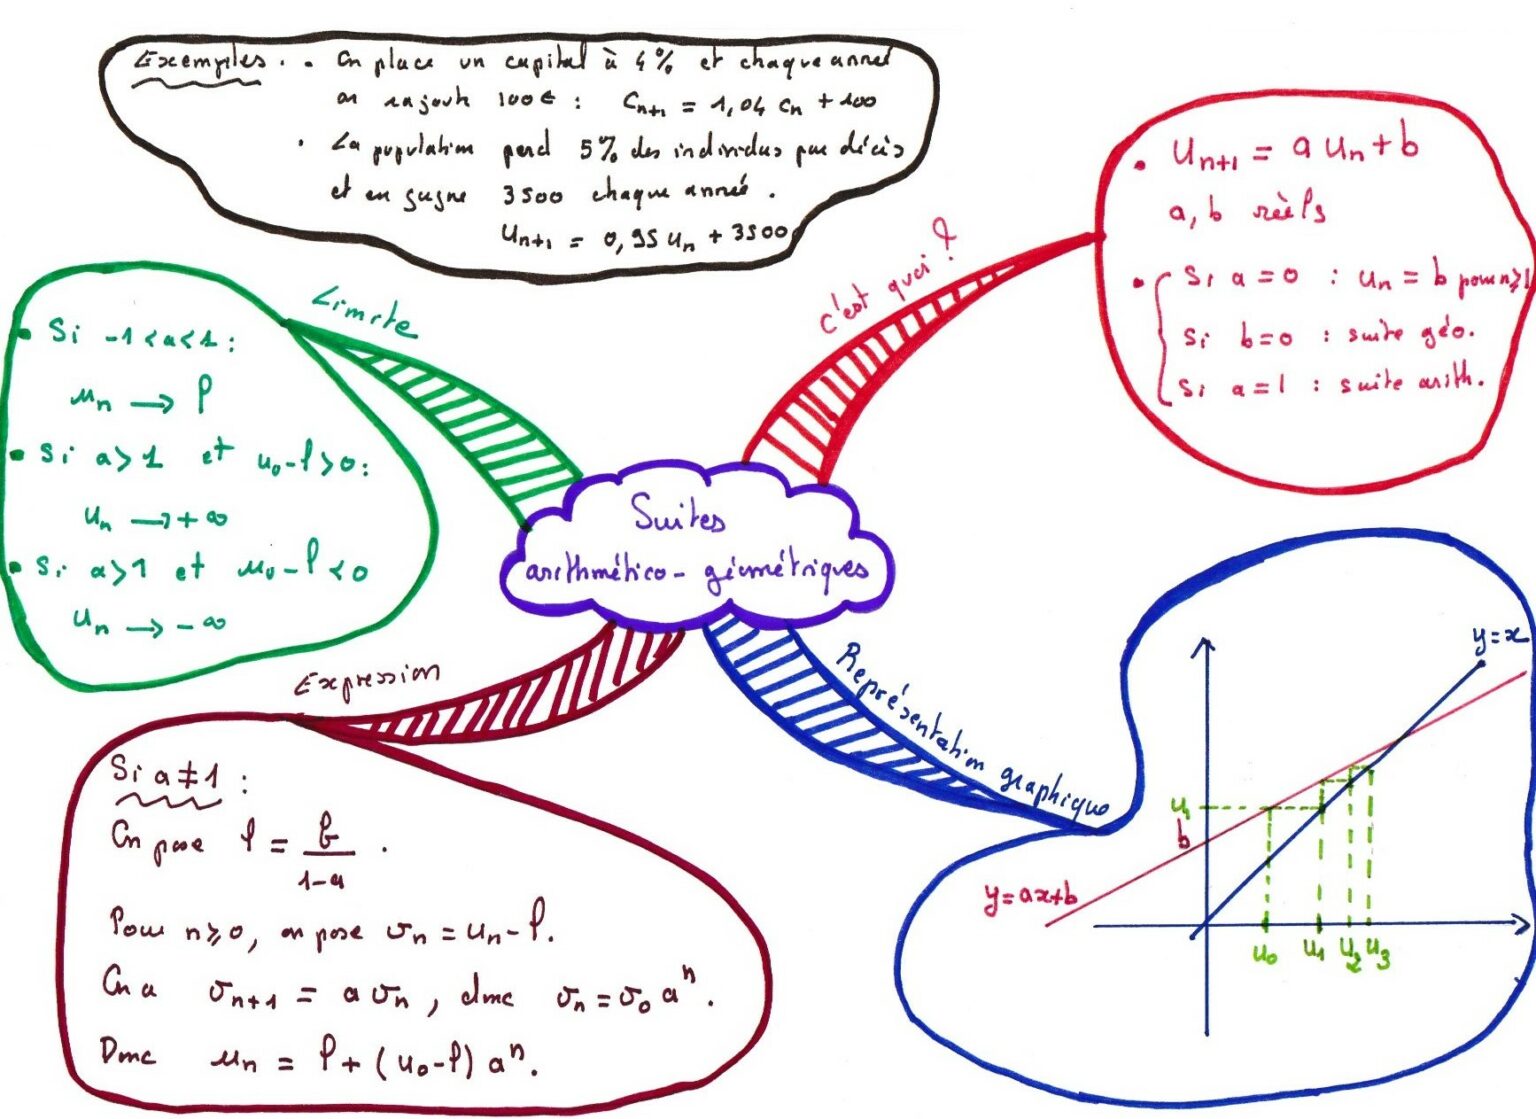 Exemples. • On place un capital à 4% et chaque année
on rajoute 100€ : Cn+1 = 1,04 Cn + 100
• La population perd 5% des individus par décès
et en gagne 3500 chaque année.
Un+1 = 0,95 Un + 3500
c'est quoi ?
• Un+1 = a Un + b
a, b réels
• { Si a=0 : Un = b pour n≥1
Si b=0 : suite géo.
Si a=1 : suite arith.
Limite
• Si -1<a<1 :
un → l
• Si a>1 et u0-l>0 :
un → +∞
• Si a>1 et u0-l<0
un → -∞
Suites
arithmético-géométriques
Expression
Si a≠1 :
On pose l = b/(1-a) .
Pour n≥0, on pose vn = un-l.
On a vn+1 = a vn, donc vn = v0 a^n.
Donc un = l + (u0-l) a^n.
Représentation graphique
y=x
u1
b
y=ax+b
u0 u1 u2 u3